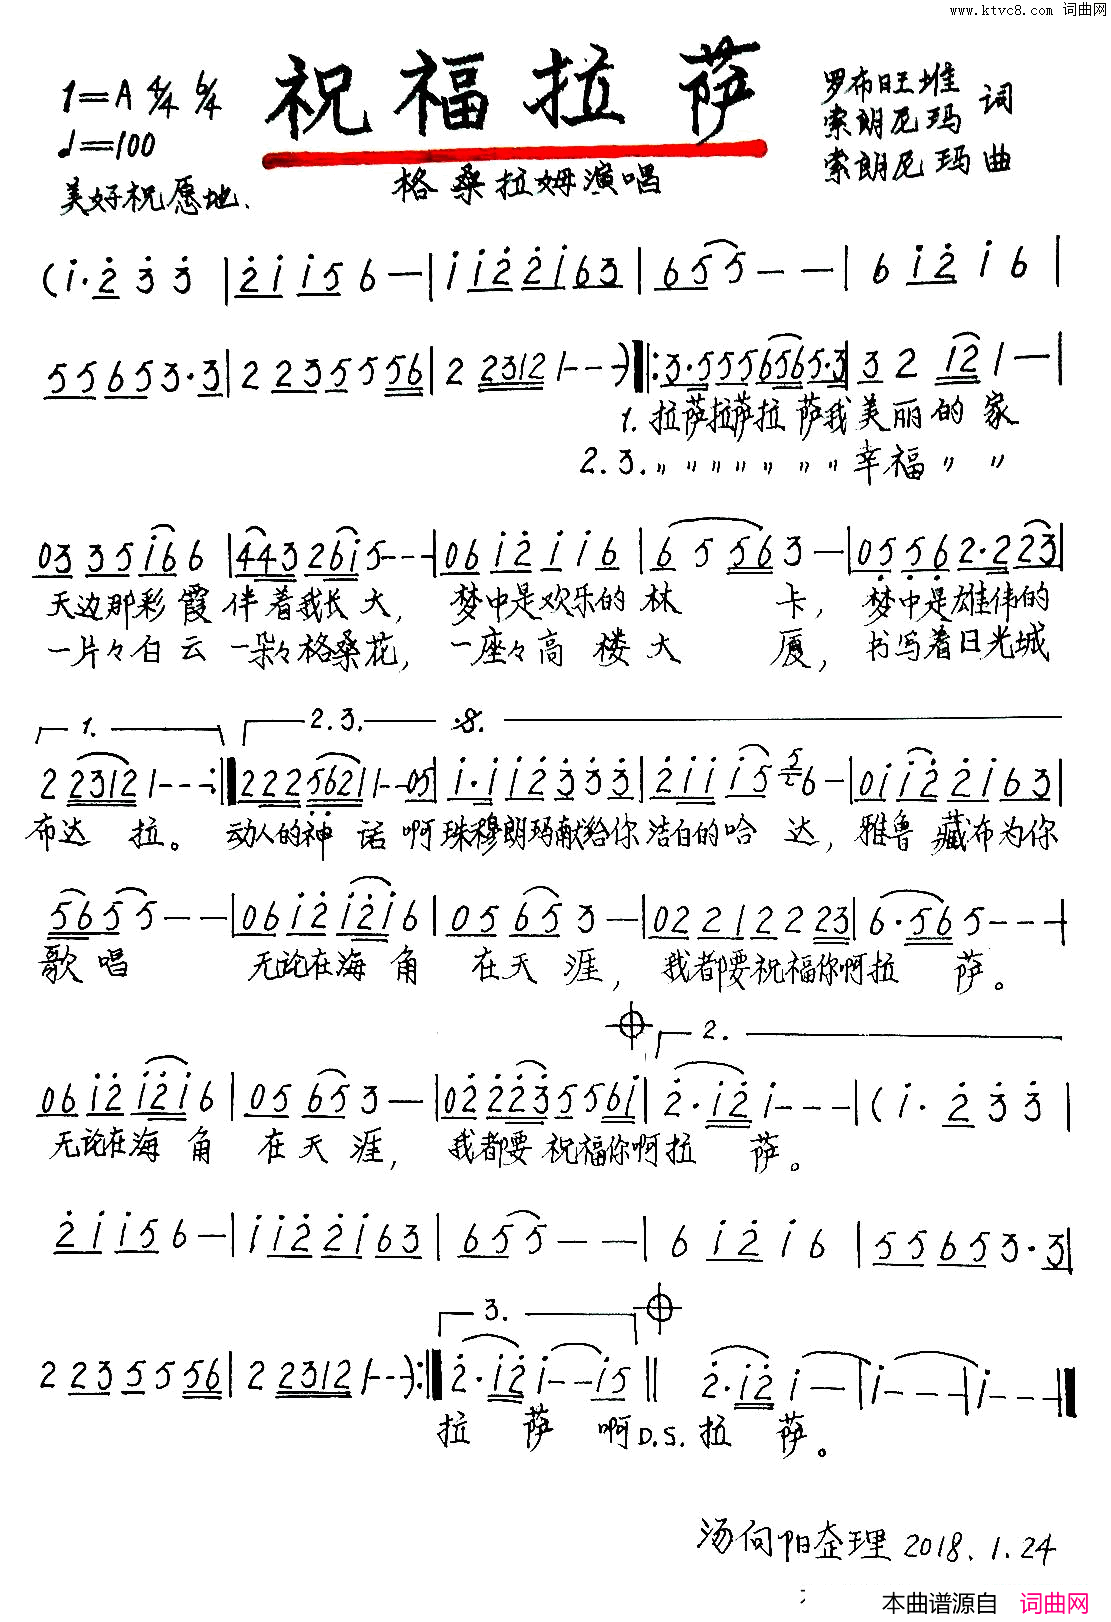 www.ktvc8.com 词曲网
祝福拉萨
1=A 4/4 6/4
♩=100
美好祝愿地.
罗布旺堆
索朗尼玛 词
索朗尼玛 曲
格桑拉姆演唱
(i·2 3 3 | 2 i i 5 6 — | i i 2 2 i 6 3 | 6 5 5 — — | 6 i 2 i 6 |
5 5 6 5 3·3 | 2 2 3 5 5 5 6 | 2 2 3 1 2 1 - - -) ‖: 3·5 5 5 6 5 6 5·3 | 3 2 1 2 1 — |
1. 拉萨拉萨拉 萨我美丽的家
2.3. 〃〃〃〃〃〃〃幸福〃〃
0 3 3 5 i 6 6 | 4 4 3 2 6 i 5 - - - | 0 6 i 2 i i 6 | 6 5 5 6 3 — | 0 5 5 6 2·2 2 3 |
天边那彩霞伴着我长大, 梦中是欢乐的林卡, 梦中是雄伟的
一片々白云一朵々格桑花, 一座々高楼大厦, 书写着日光城
1. 2.3. 𝄋
2 2 3 1 2 1 - - - :‖ 2 2 2 5 6 2 1 1 - - 0 5 | i·i i 2 3 3 3 | 2 i i i 5 5/2 6 — | 0 i i 2 2 i 6 3 |
布达拉。 动人的神话啊珠穆朗玛献给你洁白的哈达, 雅鲁藏布为你
5 6 5 5 — — | 0 6 i 2 i 2 i 6 | 0 5 6 5 3 — | 0 2 2 1 2 2 2 3 | 6·5 6 5 - - - |
歌唱 无论在海角在天涯, 我都要祝福你啊拉萨。
2.
0 6 i 2 i 2 i 6 | 0 5 6 5 3 — | 0 2 2 2 3 5 5 6 i | 2·i 2 i - - - | (i·2 3 3 |
无论在海角在天涯, 我都要祝福你啊拉萨。
2 i i 5 6 — | i i 2 2 i 6 3 | 6 5 5 — — | 6 i 2 i 6 | 5 5 6 5 3·3 |
3.
2 2 3 5 5 5 6 | 2 2 3 1 2 1 - - -) :‖ 2·i 2 i - - i 5 ‖ 2·i 2 i — | i - - - | i - - - ‖
拉萨啊D.S.拉萨。
汤向阳整理 2018.1.24
本曲谱源自 词曲网